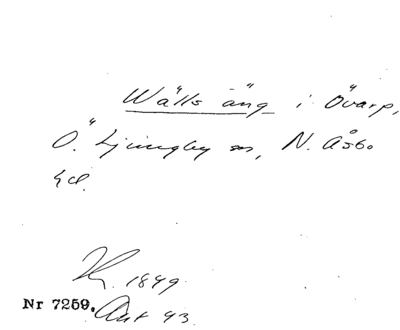 Wälls äng i Övarp,
Ö. Ljungby sn, N. Åsbo
hd.
K. 1849
Nr 7259. Akt 93